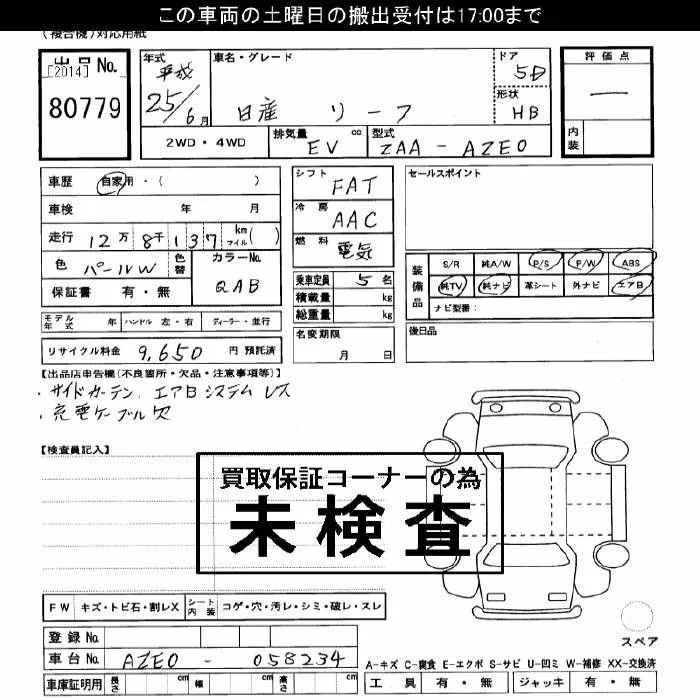 この車両の土曜日の搬出受付は17:00まで
(複合機)対応用紙
出品No.
[2014]
80779
年式
平成
25/6月
車名・グレード
日産 リーフ
ドア
5D
形状
HB
評価点
―
内装
2WD・4WD
排気量 cc
EV
型式
ZAA-AZE0
車歴 自家用・( )
車検 年 月
走行 12万8千137 km マイル( )
色 パールW 色替
カラーNo.
QAB
保証書 有・無
シフト FAT
冷房 AAC
燃料 電気
乗車定員 5名
積載量 kg
総重量 kg
名変期限
月 日
セールスポイント
装備品
S/R 純A/W P/S P/W ABS
純TV 純ナビ 革シート 外ナビ エアB
ナビ型番:
後日品
モデル年式 年 ハンドル 左・右 ディーラー・並行
リサイクル料金 9,650 円 預託済
【出品店申告欄(不良箇所・欠品・注意事項等)】
・サイドカーテン エアBシステムレス
・充電ケーブル欠
【検査員記入】
買取保証コーナーの為
未検査
FW キズ・トビ石・割レX シート内装 コゲ・穴・汚レ・シミ・破レ・スレ
スペア
登録No.
車台No. AZE0-058234
A-キズ C-腐食 E-エクボ S-サビ U-凹ミ W-補修 XX-交換済
車庫証明用 長さ cm 幅 cm 高さ cm
工具 有・無 ジャッキ 有・無